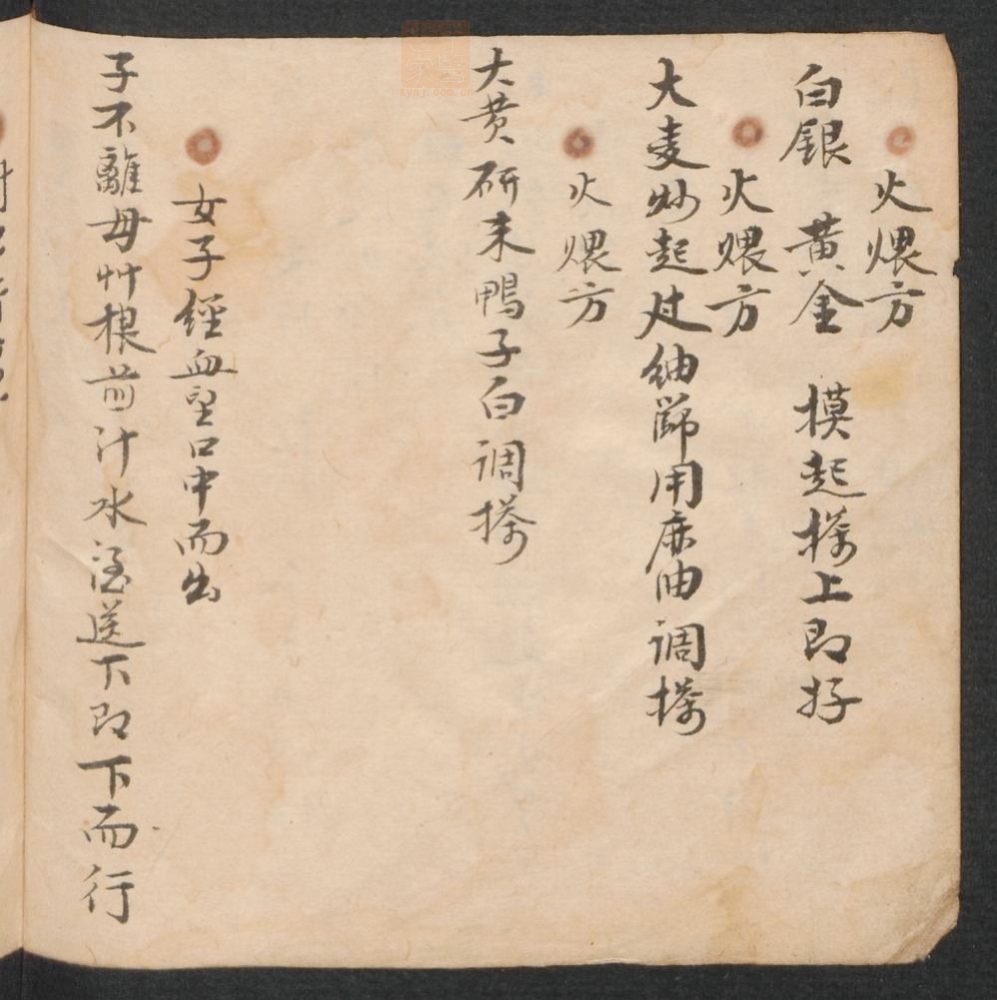 火煨方
白銀 黃金 模起搽上即好
火煨方
大麦炒起过細篩用麻油调搽
火煨方
大黄研末鴨子白调搽
女子經血望口中而出
子不離母艸根前汁水酒送下即下而行